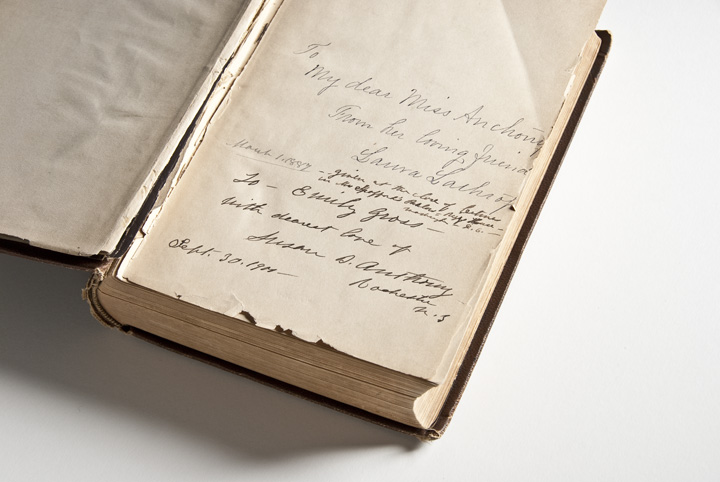 To
My dear Miss Anthony
From her loving friend
Laura
March 1. 1887
- given at the close of
in
Washington D. C. -
To - Emily Gross -
with dearest love of
Susan B. Anthony -
Sept. 30. 1900 -
Rochester
N. Y